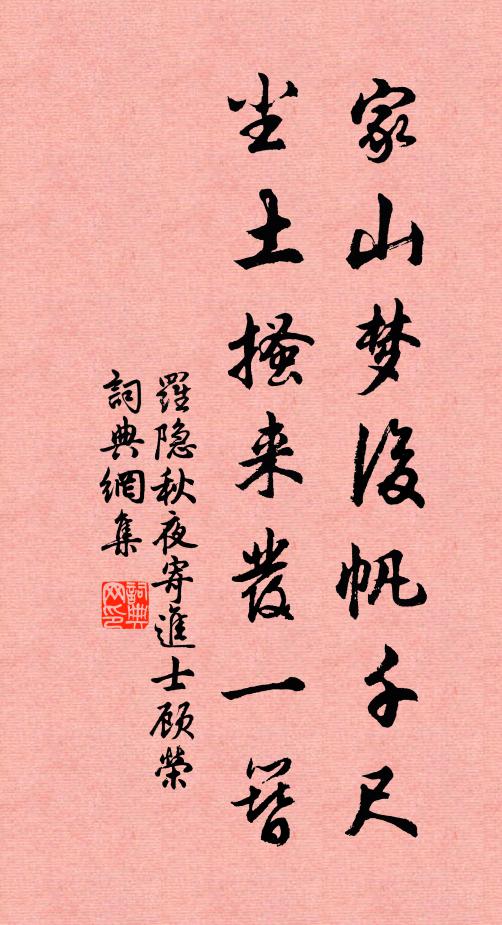 家山梦後帆千尺
尘土搔来發一簪
羅隐秋夜寄進士顾榮
詞典網集
詞典
网印